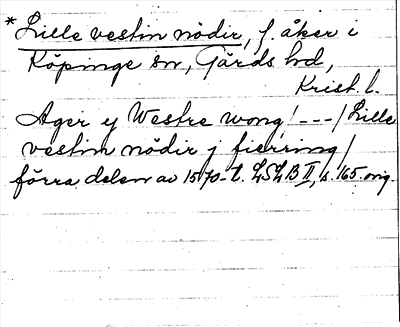 * Lille vestin nödir, f. åker i
Köpinge sn, Gärds hd,
Krist. l.
Ager y Westre wong / - - - / Lille
vestin nödir j fierring /
förra delen av 1570-t. LSLB II, s. 165. orig.